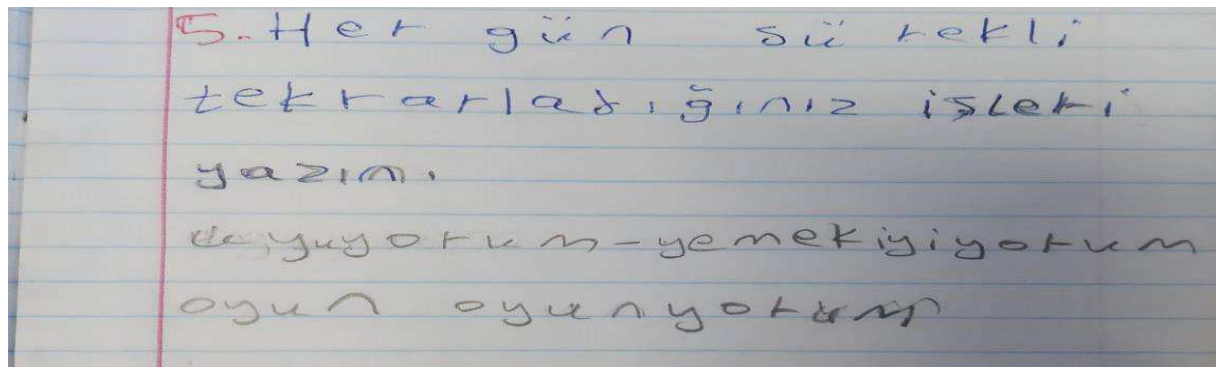 5. Her gün sü rekli
tekrarladığınız işleri
yazın.
uyuyorum-yemekiyiyorum
oyun oyunyorum